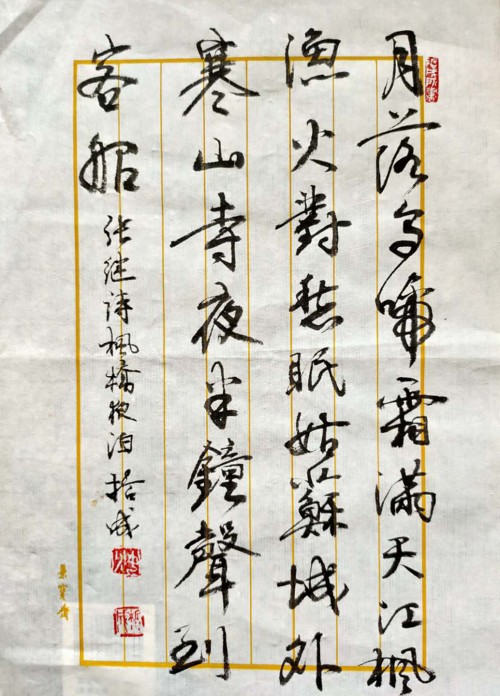 月落乌啼霜满天江枫
渔火對愁眠姑蘇城外
寒山寺夜半鐘聲到
客船
张继诗枫橋夜泊